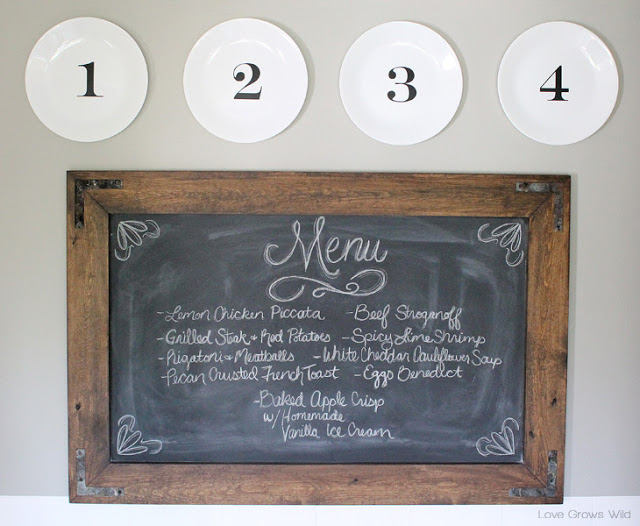 1 2 3 4
Menu
-Lemon Chicken Piccata -Beef Stroganoff
-Grilled Steak + Red Potatoes -Spicy Lime Shrimp
-Rigatoni + Meatballs -White Cheddar Cauliflower Soup
-Pecan Crusted French Toast -Eggs Benedict
-Baked Apple Crisp
w/Homemade
Vanilla Ice Cream
Love Grows Wild